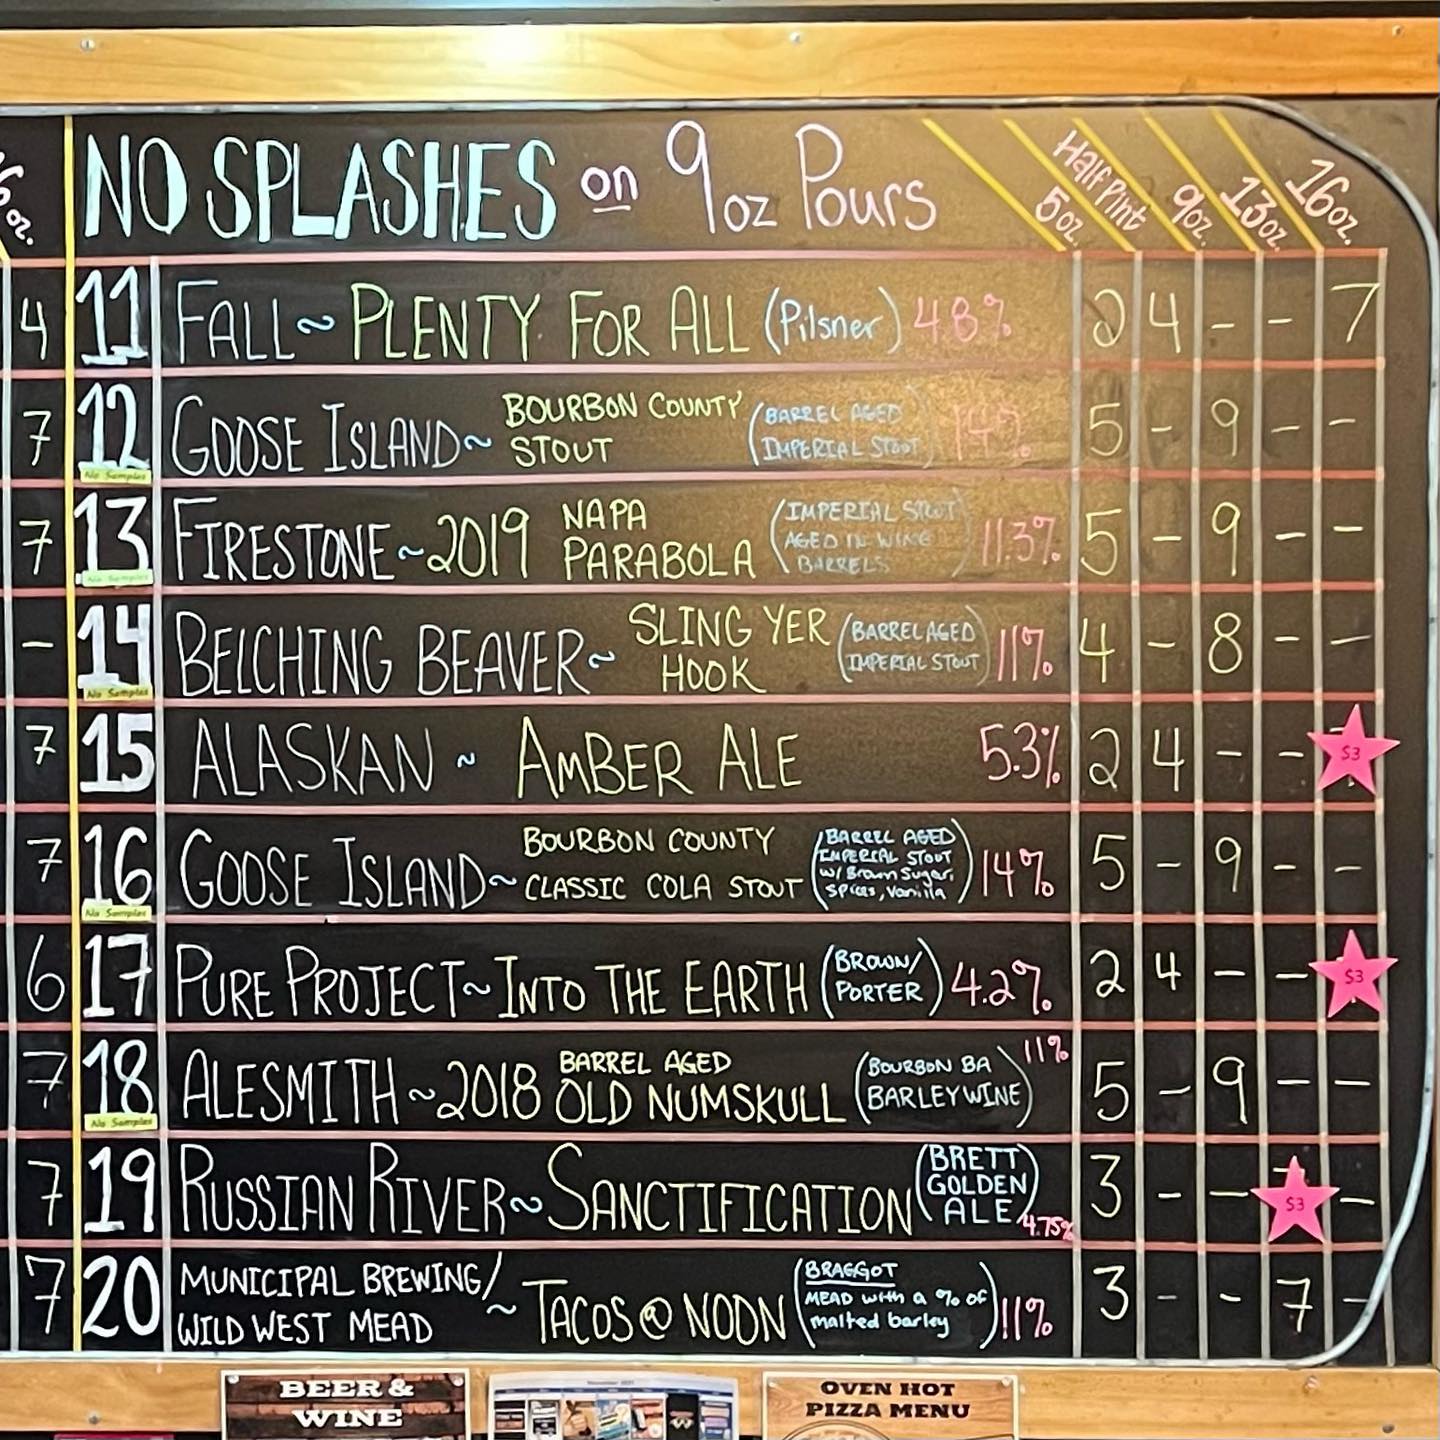 16 oz.
NO SPLASHES on 9oz Pours
5oz. Half Pint 9oz. 13oz. 16oz.
4 11 FALL ~ PLENTY FOR ALL (Pilsner) 4.8% 2 4 - - 7
7 12 GOOSE ISLAND ~ BOURBON COUNTY STOUT (BARREL AGED IMPERIAL STOUT) 14% 5 - 9 - -
No Samples
7 13 FIRESTONE ~ 2019 NAPA PARABOLA (IMPERIAL STOUT AGED IN WINE BARRELS) 11.3% 5 - 9 - -
No Samples
- 14 BELCHING BEAVER ~ SLING YER HOOK (BARREL AGED IMPERIAL STOUT) 11% 4 - 8 - -
No Samples
7 15 ALASKAN ~ AMBER ALE 5.3% 2 4 - - $3
7 16 GOOSE ISLAND ~ BOURBON COUNTY CLASSIC COLA STOUT (BARREL AGED IMPERIAL STOUT w/ Brown Sugar, Spices, Vanilla) 14% 5 - 9 - -
No Samples
6 17 PURE PROJECT ~ INTO THE EARTH (BROWN/PORTER) 4.2% 2 4 - - $3
7 18 ALESMITH ~ 2018 BARREL AGED OLD NUMSKULL (BOURBON BA BARLEYWINE) 11% 5 - 9 - -
No Samples
7 19 RUSSIAN RIVER ~ SANCTIFICATION (BRETT GOLDEN ALE) 4.75% 3 - - $3 -
7 20 MUNICIPAL BREWING/WILD WEST MEAD ~ TACOS @ NOON (BRAGGOT MEAD with a % of malted barley) 11% 3 - - 7 -
BEER &
WINE
OVEN HOT
PIZZA MENU